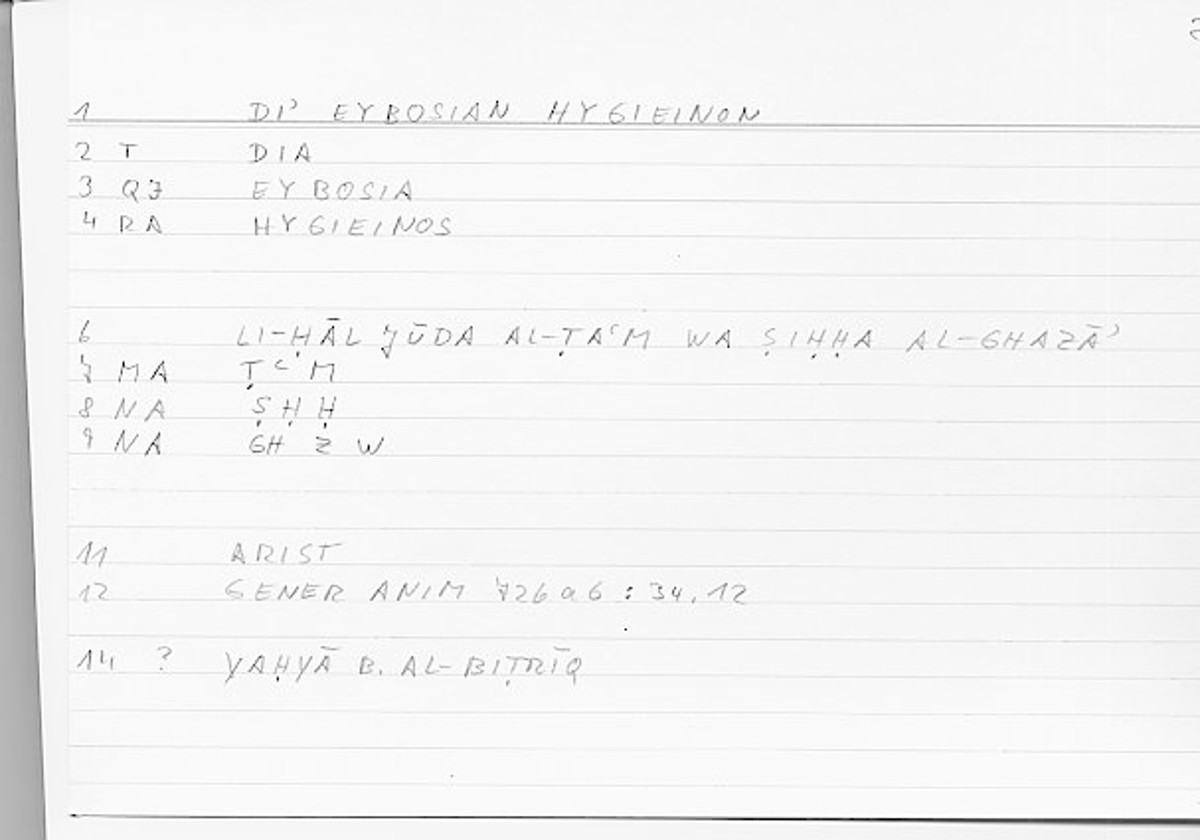 1 DIʾ EYBOSIAN HYGIEINON
2 T DIA
3 QJ EYBOSIA
4 RA HYGIEINOS
6 LI-ḤĀL JŪDA AL-ṬAʿM WA ṢIḤḤA AL-GHAZĀʾ
7 MA Ṭ ʿ M
8 NA Ṣ Ḥ Ḥ
9 NA GH Z W
11 ARIST
12 GENER ANIM 726a6 : 34.12
14 ? YAḤYĀ B. AL-BIṬRĪQ